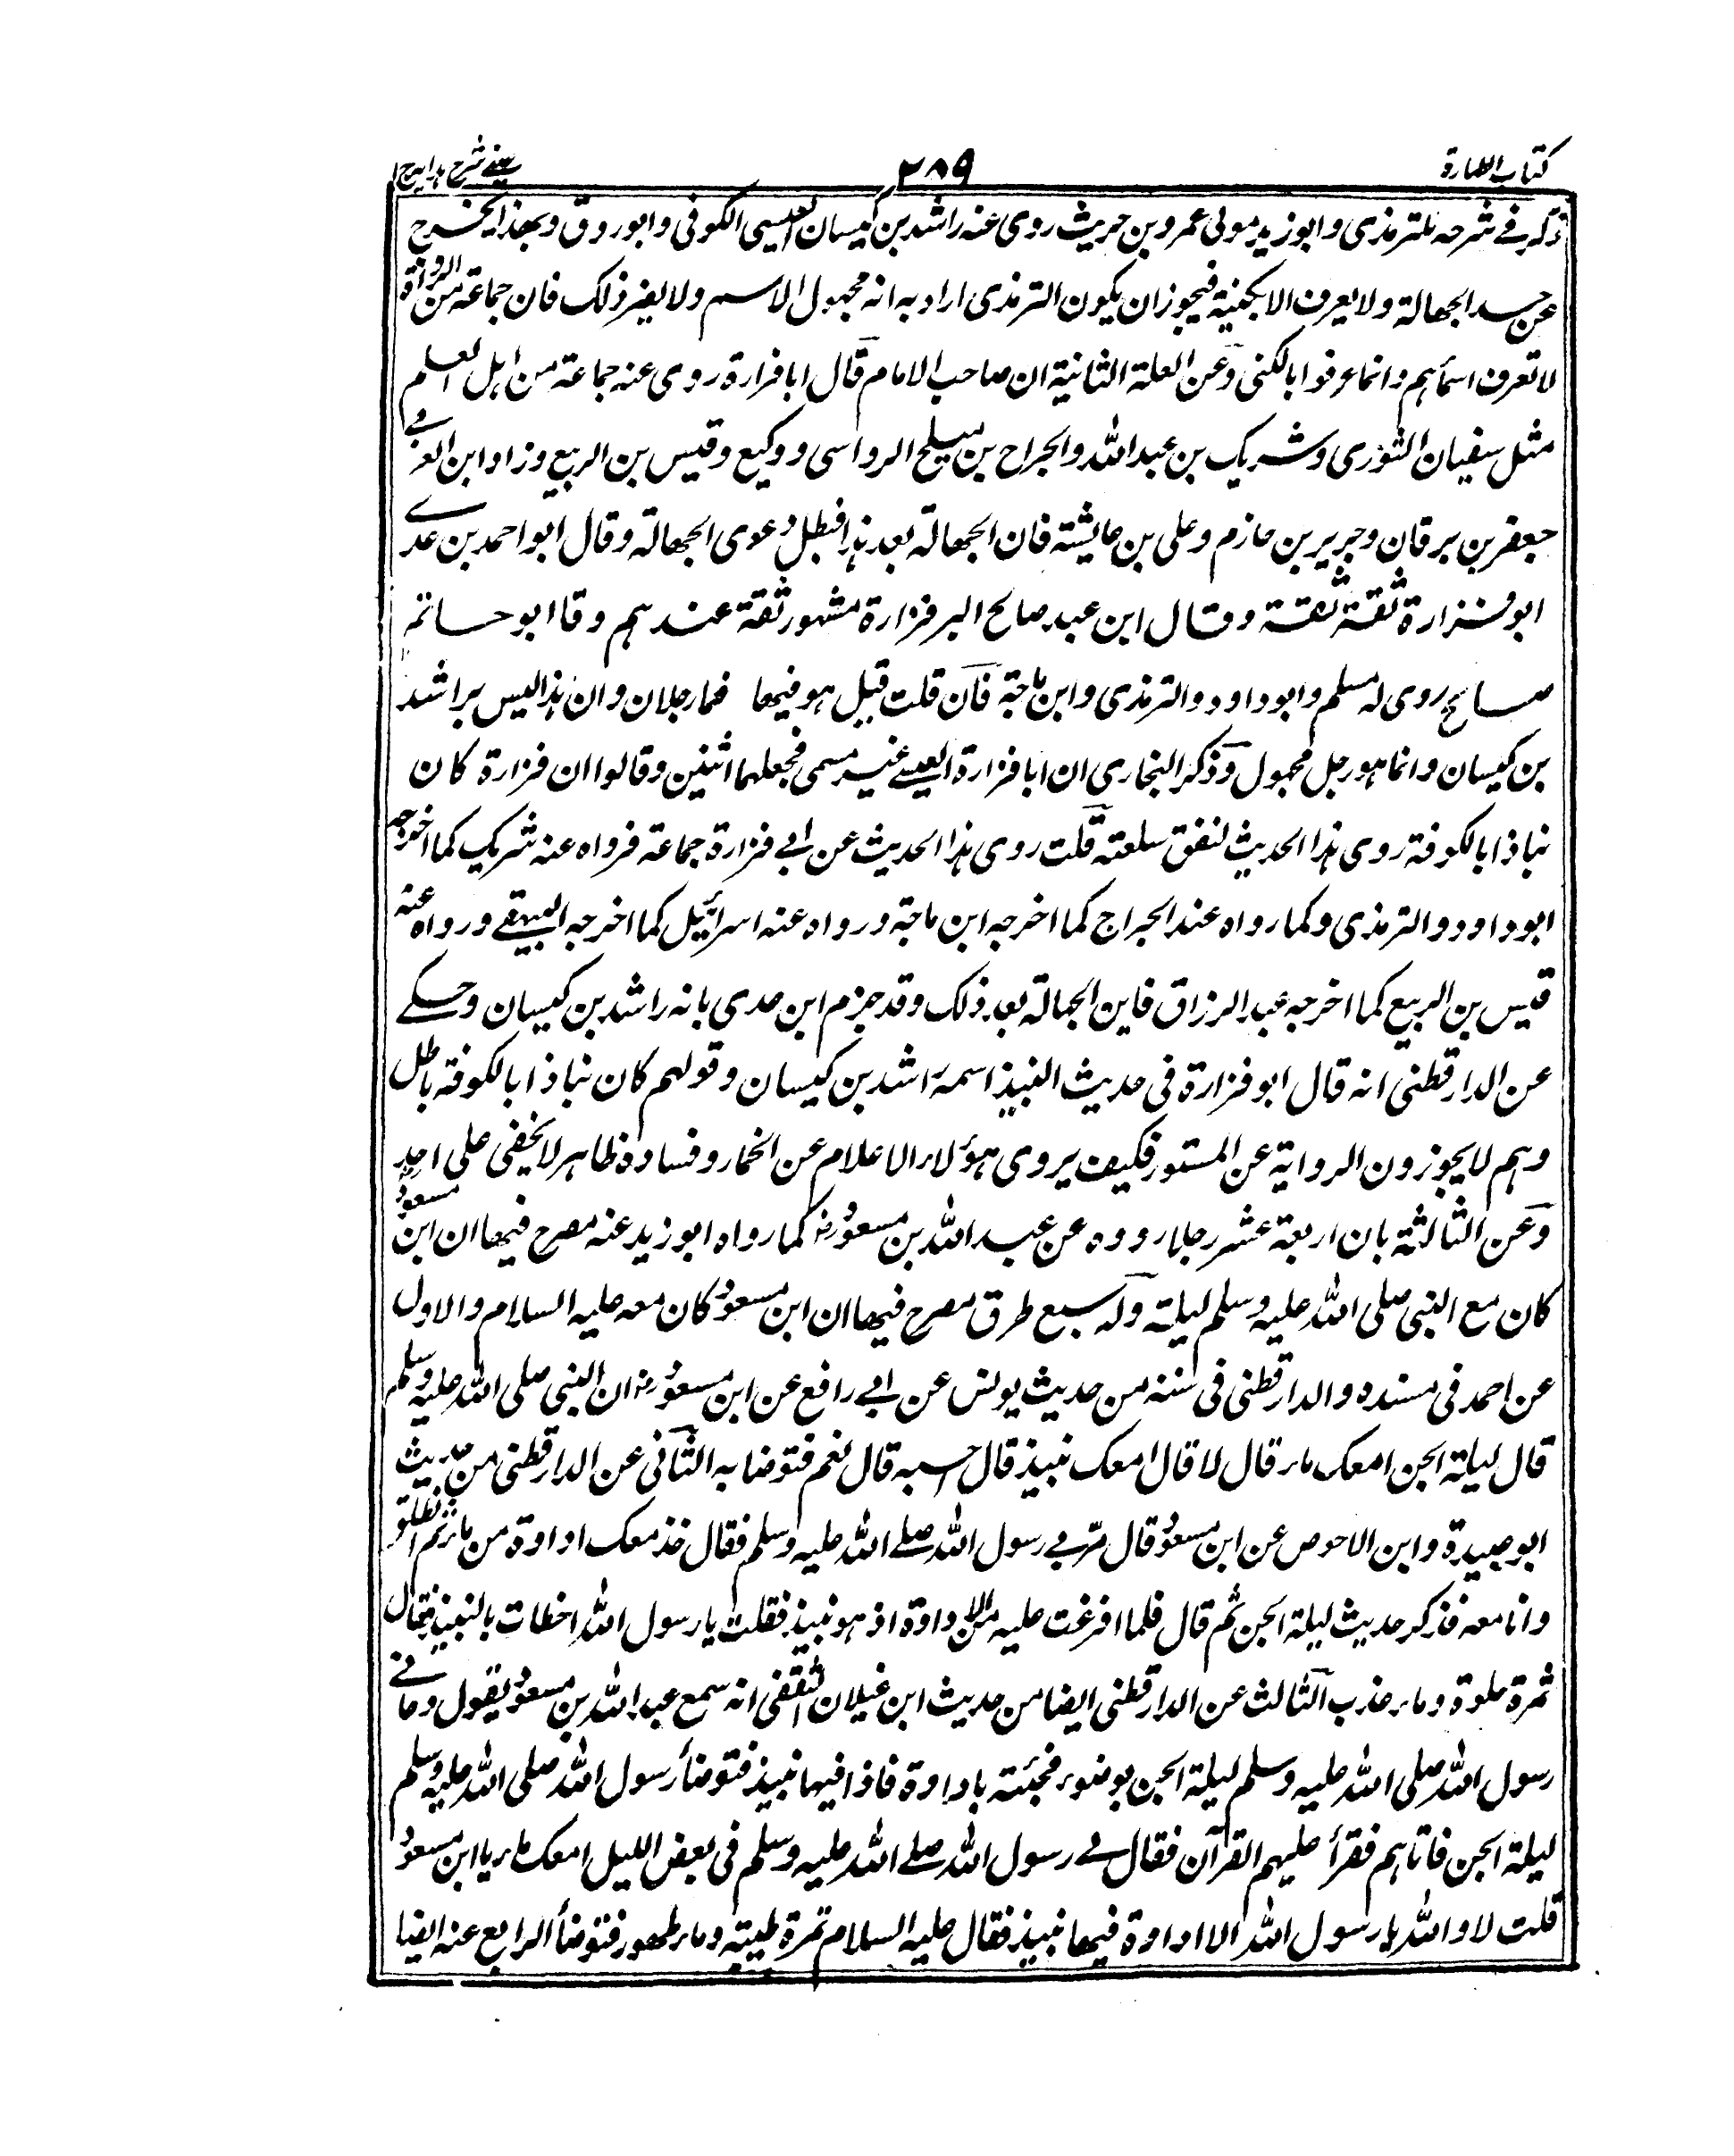 كتاب الطهارة
٢٨٩
عينے شرح هدايه ج ا
ذكره فے شرحه للترمذى وابو زيد مولى عمرو بن حريث روى عنه راشد بن كيسان العبسى الكوفى وابو روق وبهذا يخرج
عن حد الجهالة ولا يعرف الا بكنيته فيجوز ان يكون الترمذى اراد به انه مجهول الاسم ولا يضر ذلك فان جماعة من الرواة
لا تعرف اسمائهم وانما عرفوا بالكنى وعن العلة الثانية ان صاحب الامام قال ابا فزارة روى عنه جماعة من اهل العلم
مثل سفيان الثورى وشريك بن عبد الله والجراح بن مليح الرواسى ووكيع وقيس بن الربيع وزاد ابن العربے
جعفر بن برقان وجرير بن حازم وعلى بن عايشة فان الجهالة بعد هذا فبطل دعوى الجهالة وقال ابو احمد بن عدے
ابو فزارة ثقة ثقة وقال ابن عبد صالح البر فزارة مشهور ثقة عندهم وقا ابو حاتم
صالح روى له مسلم وابو داود والترمذى وابن ماجة فان قلت قيل هو فيها فما رجلان وان هذا ليس براشد
بن كيسان وانما هو رجل مجهول وذكر البخارى ان ابا فزارة العبسے غير مسمى فجعلهما اثنين وقالوا ان فزارة كان
نباذا بالكوفة روى هذا الحديث لنفق سلعته قلت روى هذا الحديث عن ابے فزارة جماعة فرواه عنه شريك كما اخرجه
ابو داود والترمذى وكما رواه عند الجراح كما اخرجه ابن ماجة ورواه عنه اسرائيل كما اخرجه البيهقے ورواه عنه
قيس بن الربيع كما اخرجه عبد الرزاق فاين الجهالة بعد ذلك وقد جزم ابن عدى بانه راشد بن كيسان وحكے
عن الدارقطنى انه قال ابو فزارة فى حديث النبيذ اسمه راشد بن كيسان وقولهم كان نباذا بالكوفة باطل
وهم لا يجوزون الرواية عن المستور فكيف يروى هؤلاء الاعلام عن الخمار وفساده ظاهر لا يخفى على احد
وعن الثالثة بان اربعة عشر رجلا رووه عن عبد الله بن مسعود كما رواه ابو زيد عنه مصرح فيها ان ابن مسعود
كان مع النبى صلى الله عليه وسلم ليلة وله سبع طرق مصرح فيها ان ابن مسعود كان معه عليه السلام والاول
عن احمد فى مسنده والدارقطنى فى سننه من حديث يونس عن ابے رافع عن ابن مسعود ان النبى صلى الله عليه وسلم
قال ليلة الجن امعك ماء قال لا قال امعك نبيذ قال احسبه قال نعم فتوضا به الثانى عن الدارقطنى من حديث
ابو عبيدة وابن الاحوص عن ابن مسعود قال مرّ بے رسول الله صلے الله عليه وسلم فقال خذ معك اداوة من ماء ثم انطلق
وانا معه فذكر حديث ليلة الجن ثم قال فلما افرغت عليه من الاداوة اذ هو نبيذ فقلت يا رسول الله اخطات بالنبيذ فقال
تمرة حلوة وماء عذب الثالث عن الدارقطنى ايضا من حديث ابن غيلان الثقفى انه سمع عبد الله بن مسعود يقول دعانے
رسول الله صلى الله عليه وسلم ليلة الجن بوضوء فجئته باداوة فاذا فيها نبيذ فتوضأ رسول الله صلى الله عليه وسلم
ليلة الجن فاتاهم فقرأ عليهم القرآن فقال لے رسول الله صلے الله عليه وسلم فى بعض الليل امعك ماء يا ابن مسعود
قلت لا والله يا رسول الله الا اداوة فيها نبيذ فقال عليه السلام تمرة طيبة وماء طهور فتوضأ الرابع عنه ايضا